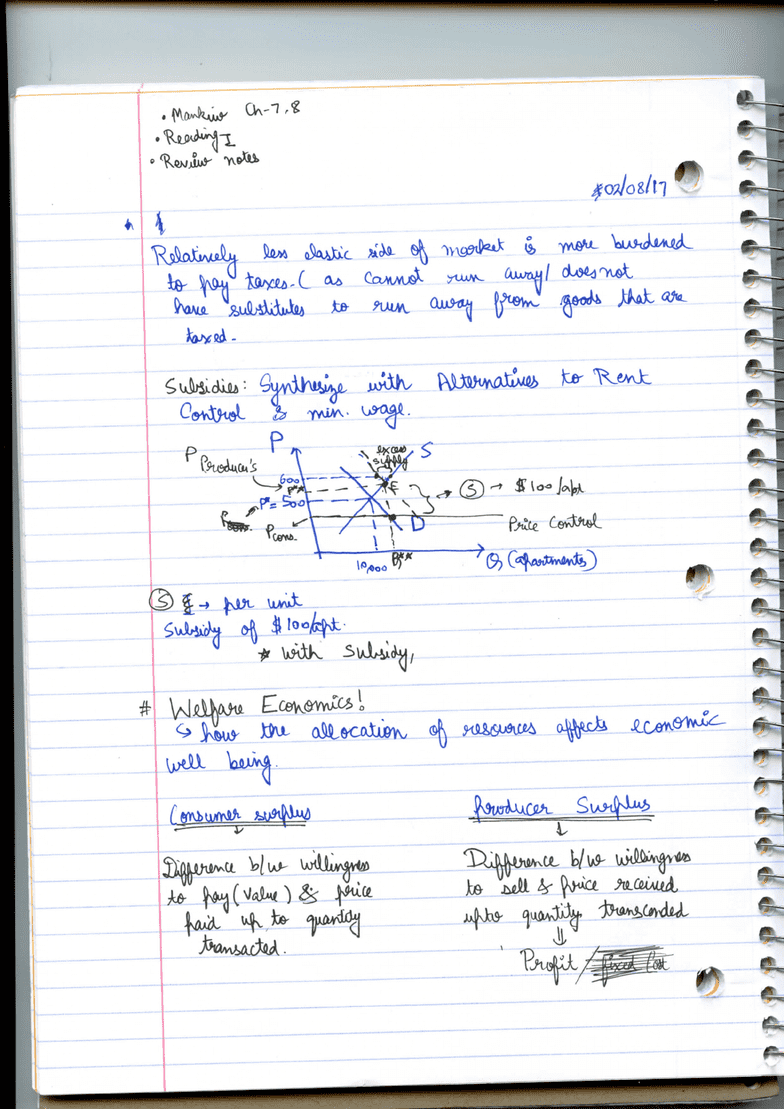 • Mankiw Ch-7,8
• Reading I
• Review notes
02/08/17
Relatively less elastic side of market is more burdened
to pay taxes. ( as cannot run away/ does not
have substitutes to run away from goods that are
taxed.
Subsidies: Synthesize with Alternatives to Rent
Control & min. wage.
P
P Producer's
excess
supply
S
600
P**
E
P* = 500
(S) → $100/apt
D
Price Control
Pcons.
10,000
Q**
Q (apartments)
(S) → per unit
Subsidy of $100/apt.
* with subsidy,
# Welfare Economics!
↳ how the allocation of resources affects economic
well being.
Consumer surplus
Producer Surplus
Difference b/w willingness
to pay (value) & price
paid up to quantity
transacted.
Difference b/w willingness
to sell & price received
upto quantity
Profit / fixed Cost